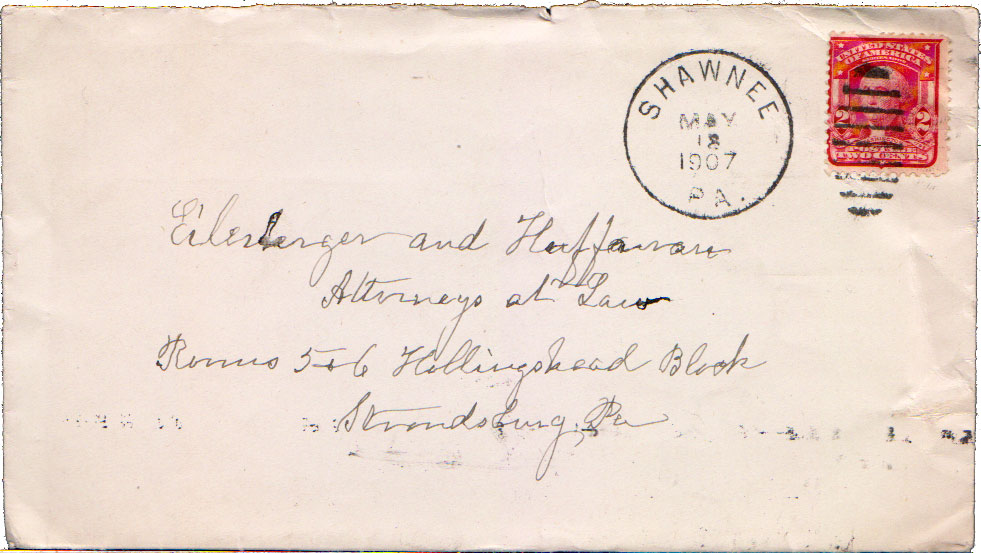 SHAWNEE
MAY
18
1907
PA.
UNITED STATES
OF AMERICA
2 2
POSTAGE
TWO CENTS
Eilenberger and Huffman
Attorneys at Law
Rooms 5+6 Hollingshead Block
Stroudsburg, Pa